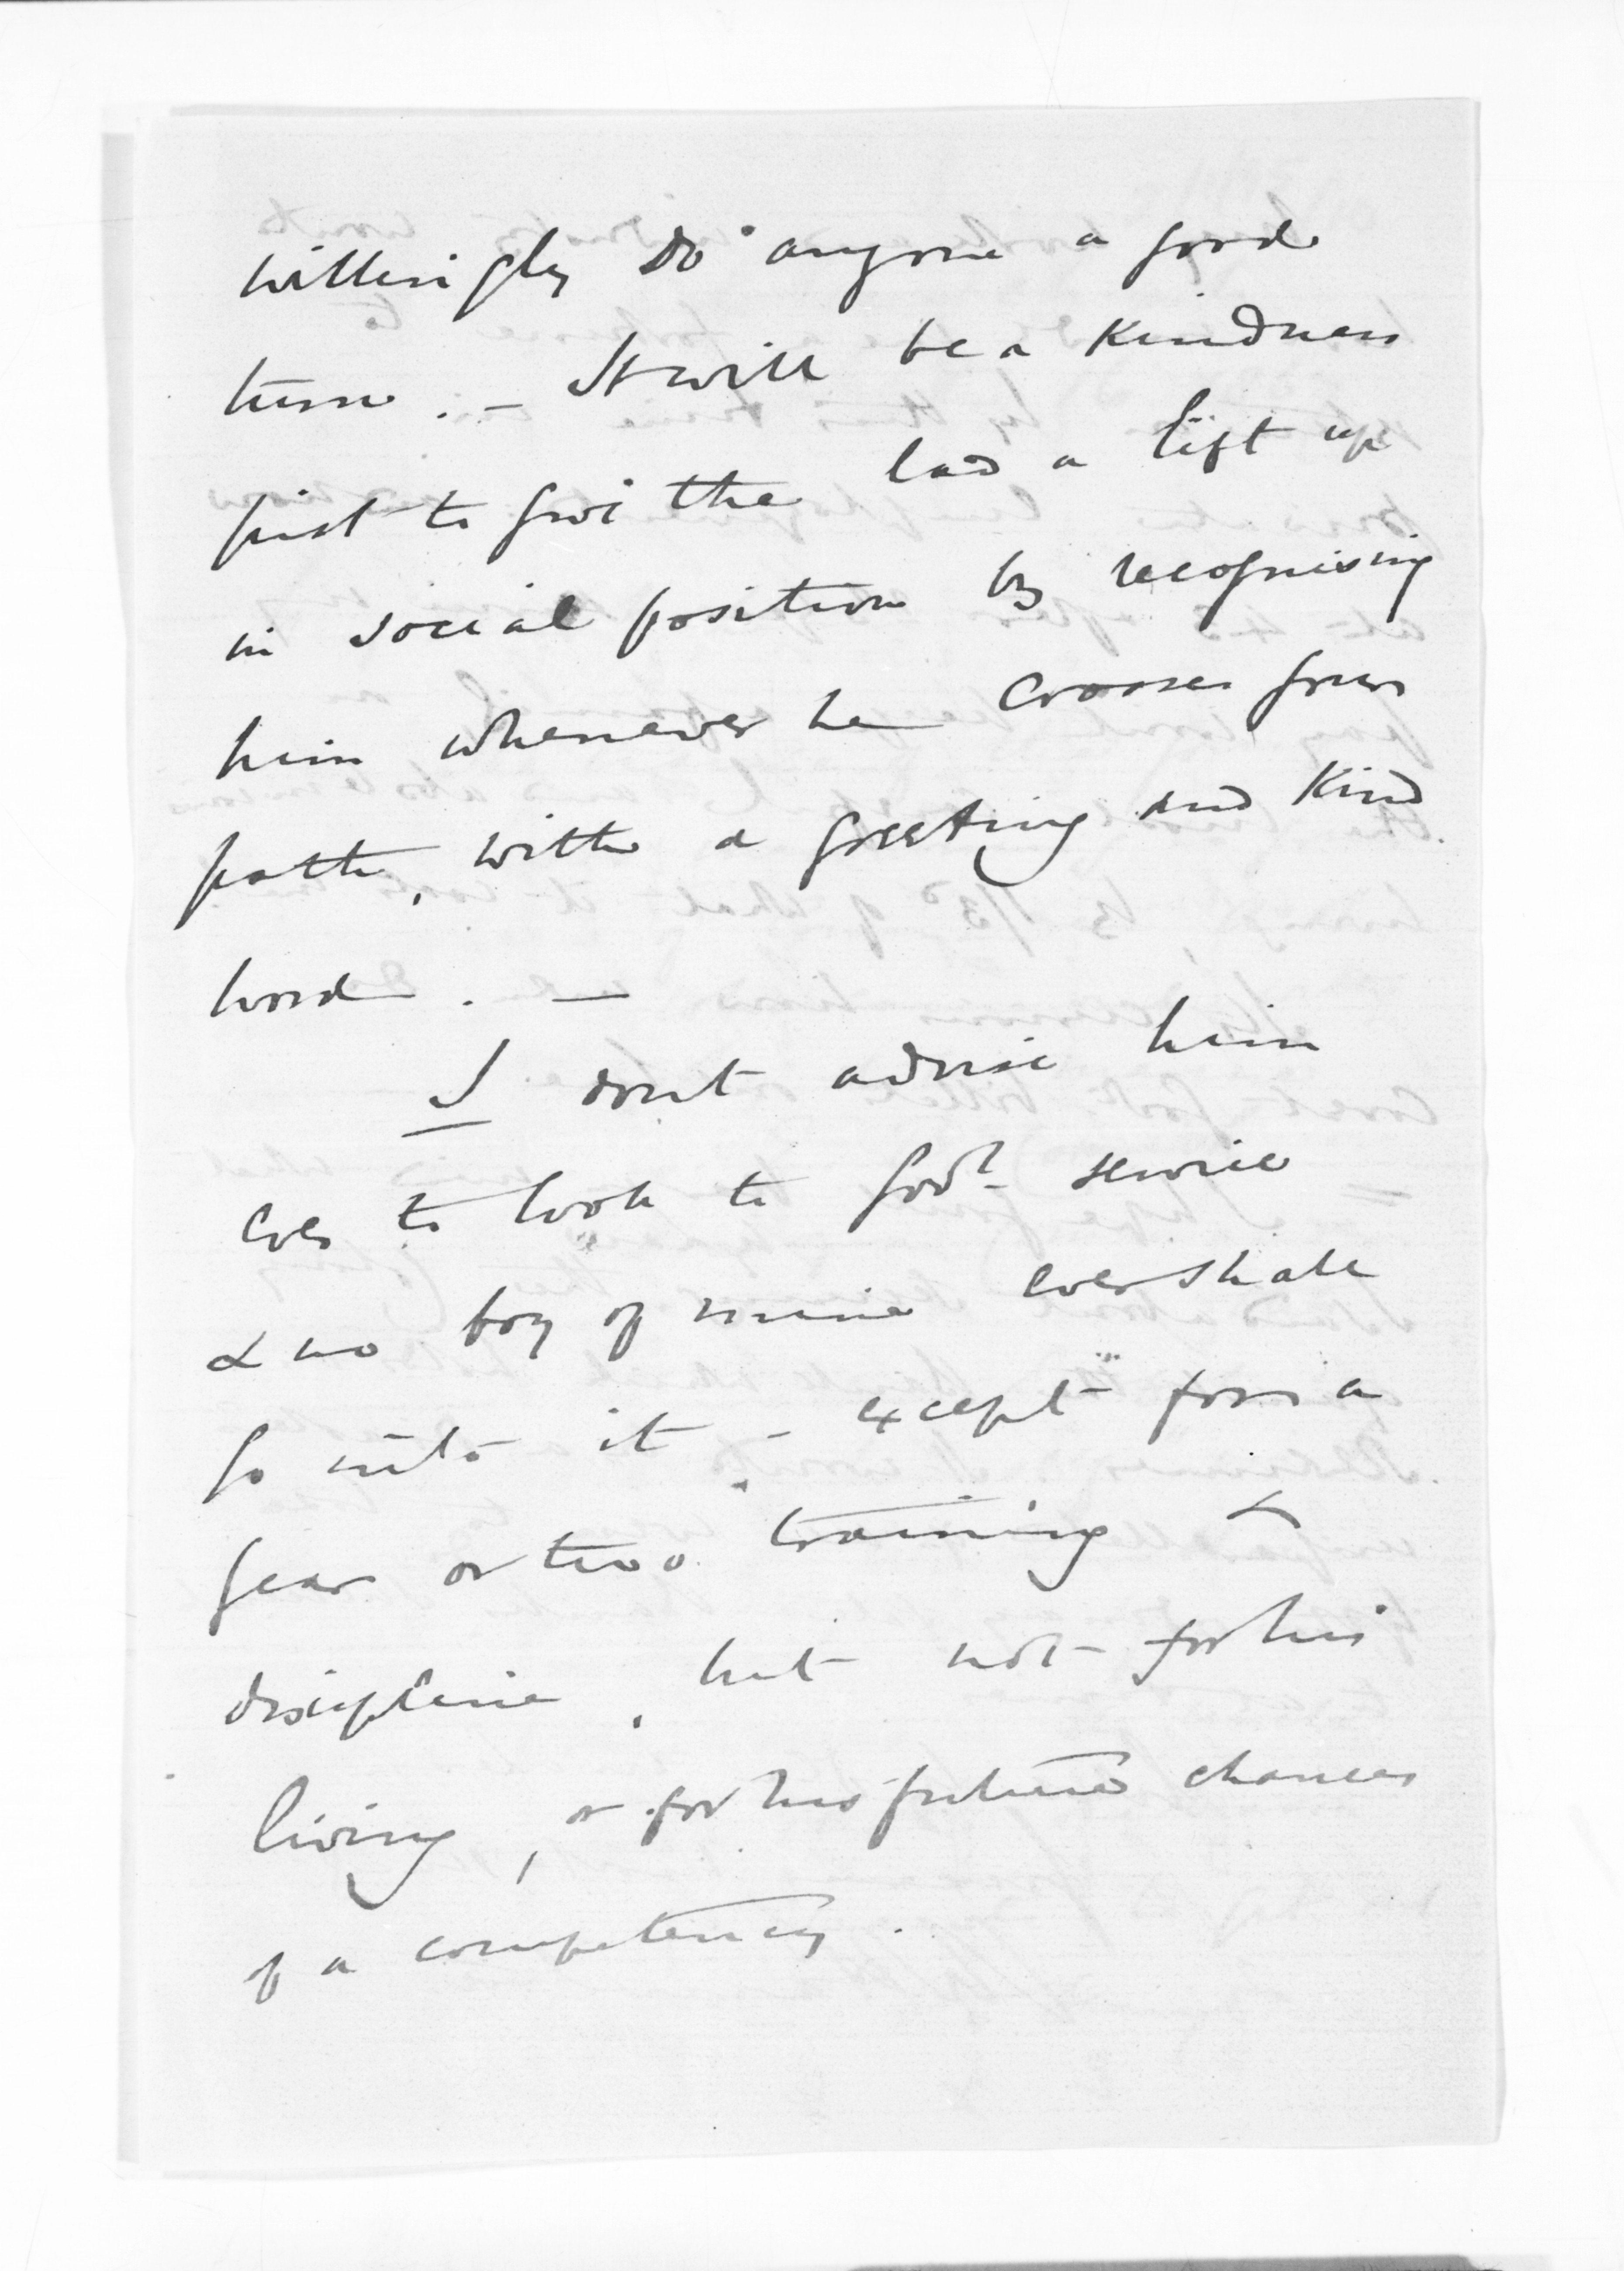 willingly do anyone a good
turn. – It will be a kindness
just to give the lad a lift up
in social position by recognising
him whenever he crosses your
path, with a greeting and kind
word. —
I don't advise him
ever to look to Govt. service
& no boy of mine ever shall
go into it – except for a
year or two training &
discipline, but not for his
living, or for his future chances
of a competency.